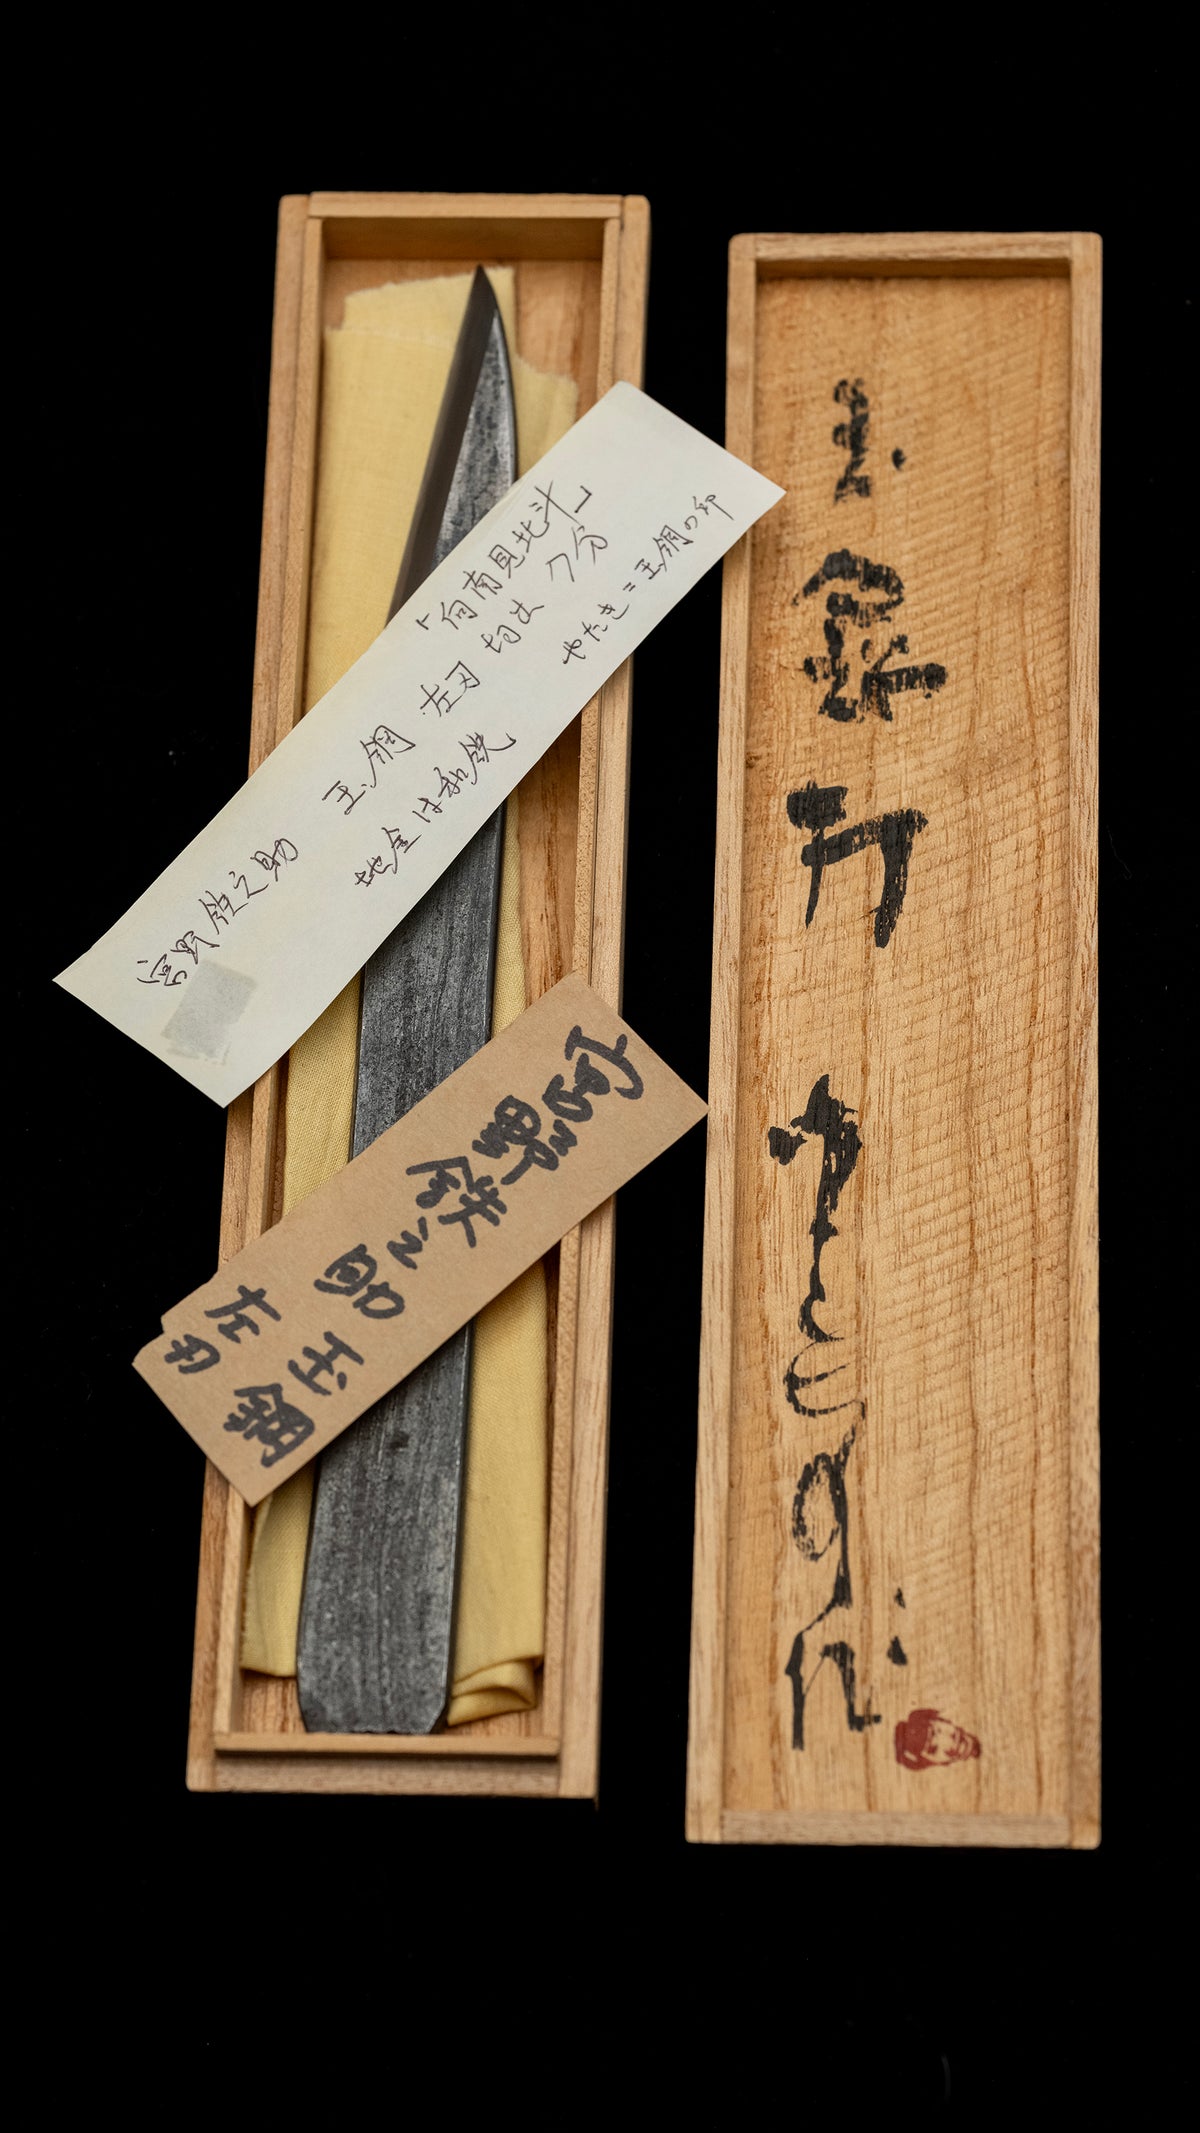 「向南見北斗」
宮野鉄之助 玉鋼 左刃 切出 7分
地金は和鉄 やたき=玉鋼の印
宮野鉄之助
玉鋼
左刃
玉鋼